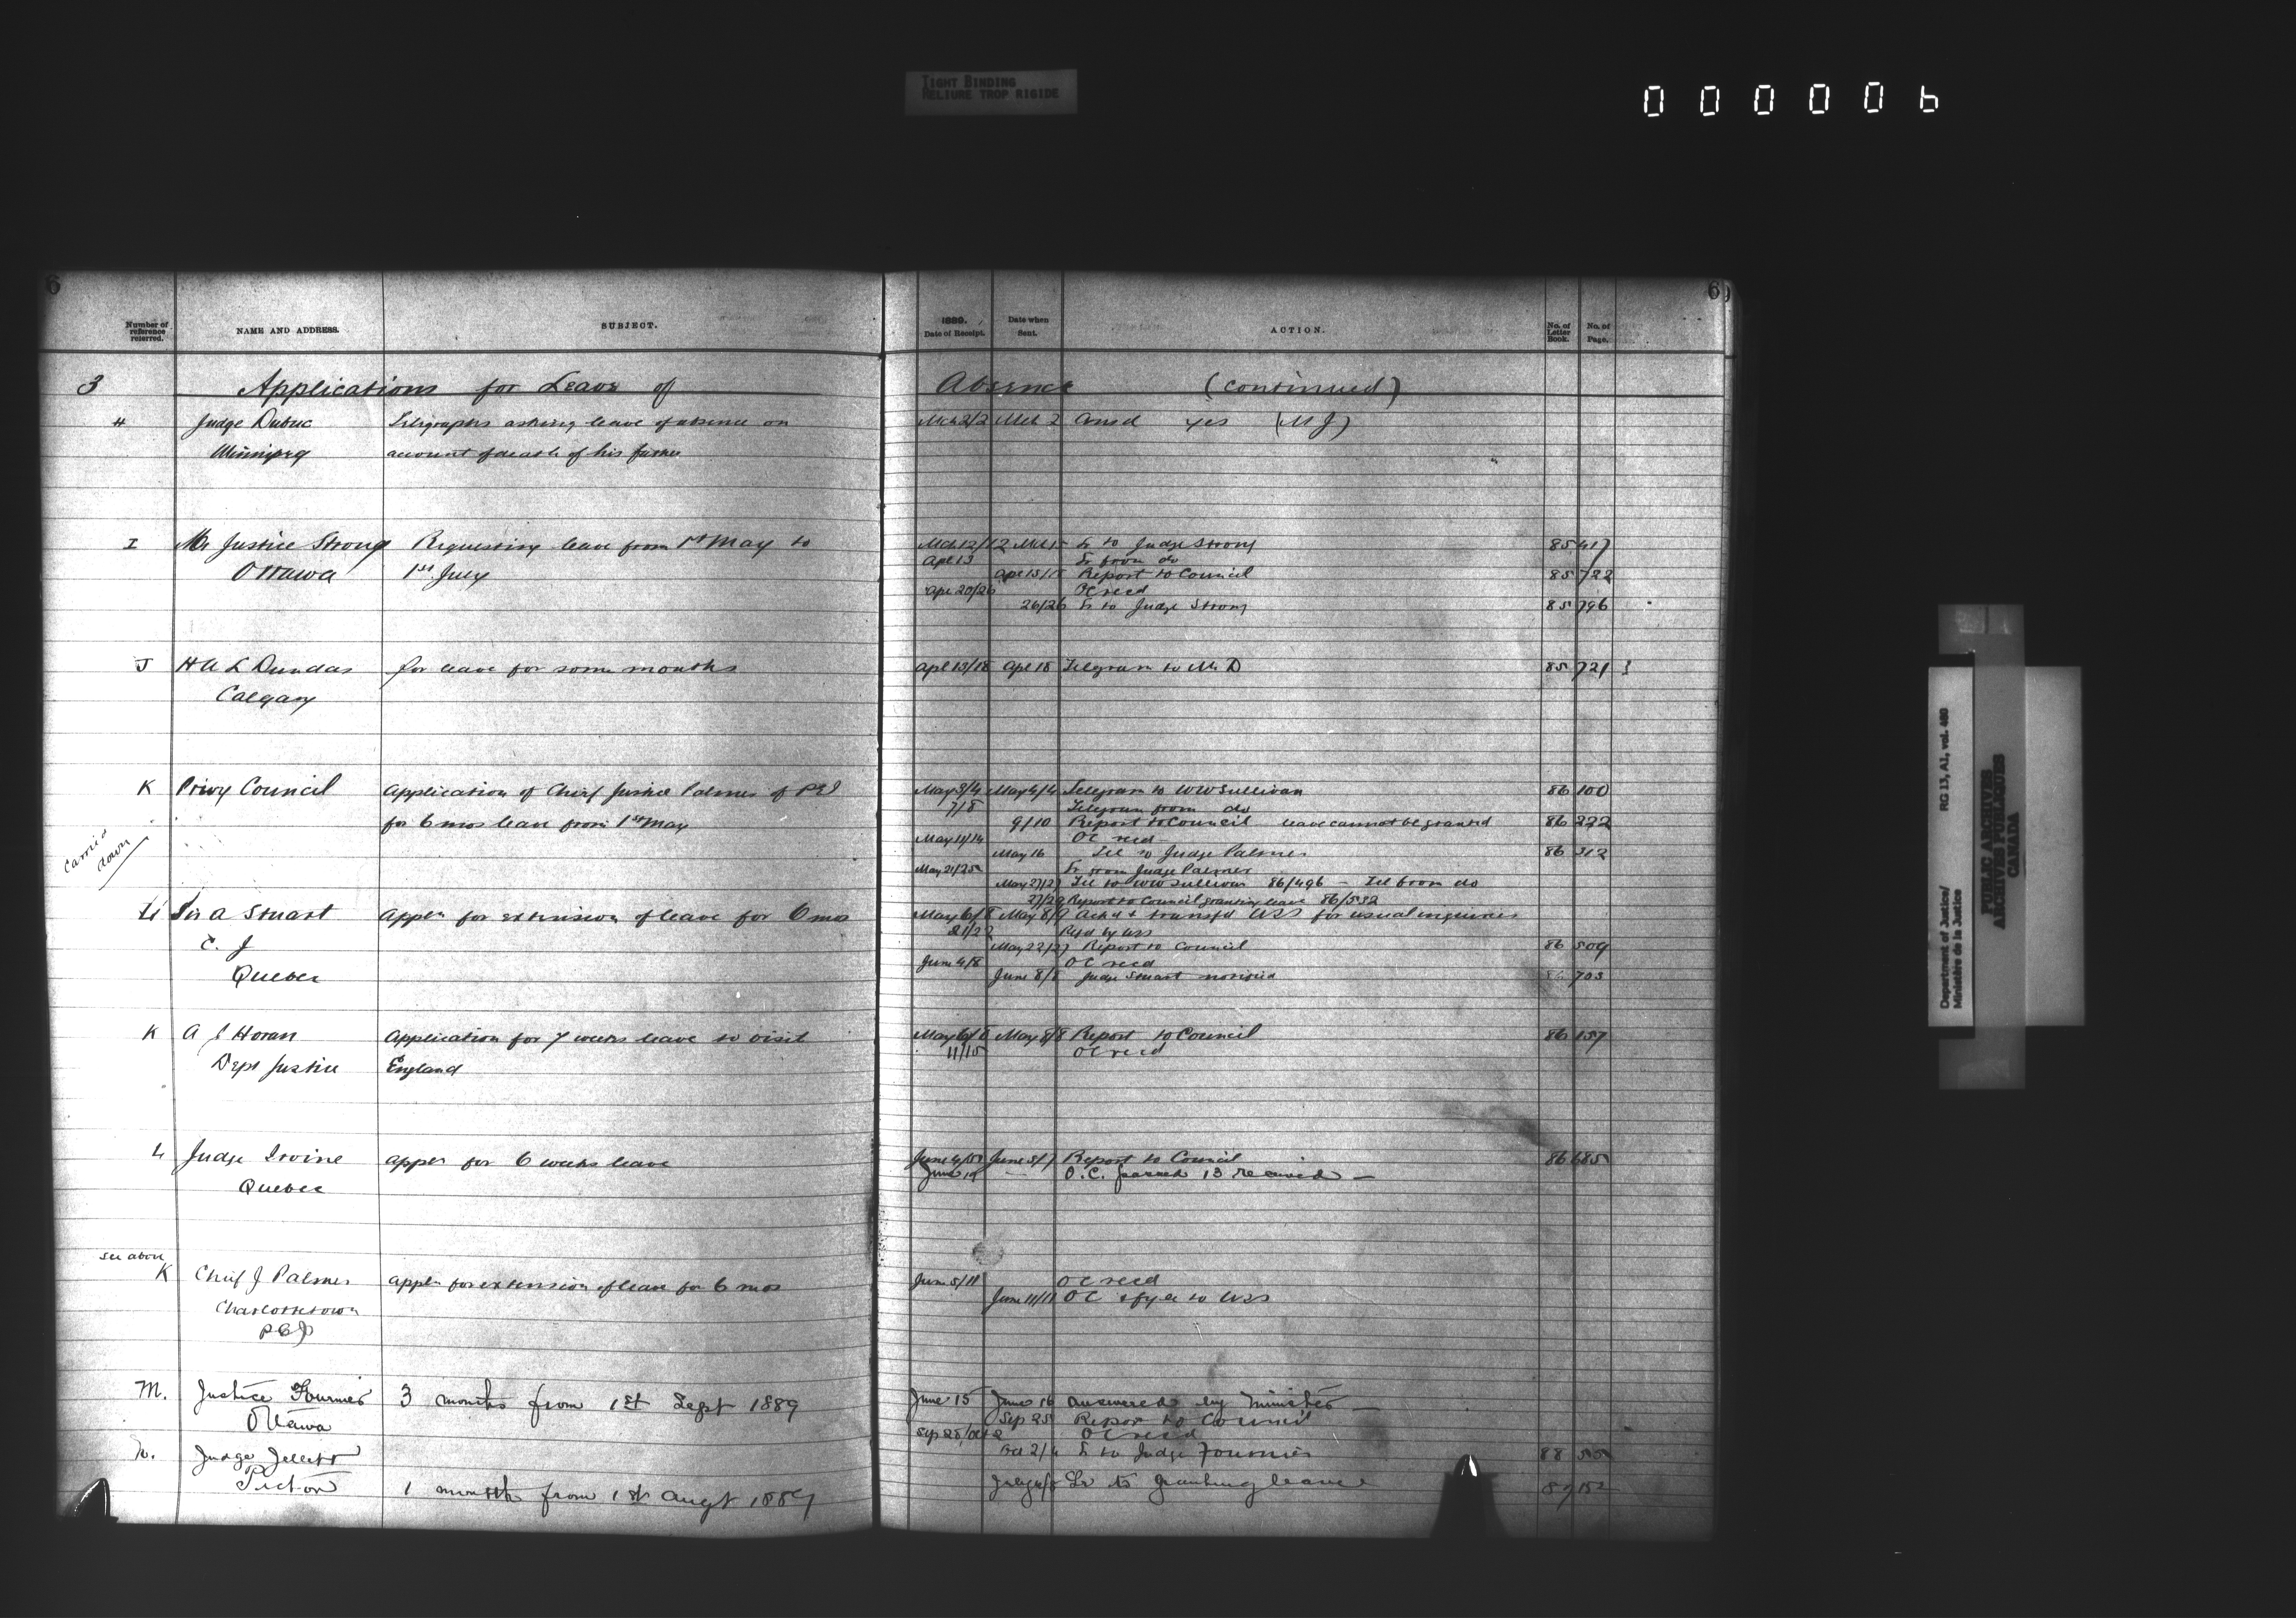 TIGHT BINDING
RELIURE TROP RIGIDE
000006
6
6
Number of reference referred.
NAME AND ADDRESS.
SUBJECT.
1889.
Date of Receipt.
Date when Sent.
ACTION.
No. of Letter Book.
No. of Page.
3 Applications for Leave of Absence (continued)
H Judge Dubuc Telegraphs asking leave of absence on Mch 2/2 Mch 2 Ansd yes (M J)
Winnipeg account of death of his father
I Mr Justice Strong Requesting leave from 1st May to Mch 12/12 Mch 15 Lr to Judge Strong 85 417
Ottawa 1st July Apl 13 Lr from do
Apl 15/18 Report to Council 85 722
Apl 20/26 OC recd
26/26 Lr to Judge Strong 85 796
J H A L Dundas for leave for some months Apl 13/18 Apl 18 Telegram to Mr D 85 721
Calgary
K Privy Council Application of Chief Justice Palmer of PEI May 3/4 May 4/4 Telegram to WW Sullivan 86 100
7/8 Telegram from do
for 6 mos leave from 1st May 9/10 Report to Council leave cannot be granted 86 222
carried down
May 11/14 OC recd
May 16 Tel to Judge Palmer 86 312
May 21/25 Lr from Judge Palmer
May 27/27 Tel to WW Sullivan 86/496 - Tel from do
27/29 Report to Council granting leave 86/532
L Sir A Stuart Appln for extension of leave for 6 mos May 6/8 May 8/9 Ackd & transfd USS for usual inquiries
C. J 21/22 Retd by USS
May 22/27 Report to Council 86 509
Quebec June 4/8 OC recd
June 8/8 Judge Stuart notified 86 703
K A J Horan Application for 7 weeks leave to visit May 6/6 May 8/8 Report to Council 86 157
11/15 OC recd
Dept Justice England
L Judge Irvine appln for 6 weeks leave June 4/5 June 5/7 Report to Council 86 685
June 19 O.C. passed 13 received —
Quebec
see above
K Chief J Palmer appln for extension of leave for 6 mos June 5/11 OC recd
Charlottetown June 11/11 OC & fyle to USS
PEI
M. Justice Fournier 3 months from 1st Sept 1889 June 15 June 16 answered by Minister —
Ottawa Sep 25 Report to Council
Sep 28/Oct 2 OC recd
N. Judge Jellett Oct 2/4 Lr to Judge Fournier 88 55
Picton 1 month from 1st Augt 1889 Lr to granting leave 87 152
Department of Justice/
Ministère de la Justice
RG 13, A1, vol. 460
PUBLIC ARCHIVES
ARCHIVES PUBLIQUES
CANADA